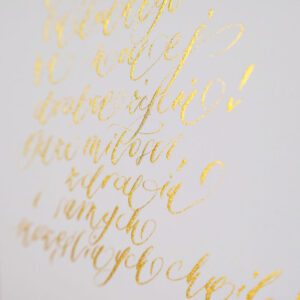 na waszej
drodze życia!
Dużo miłości,
zdrowia
i samych
szczęśliwych chwil